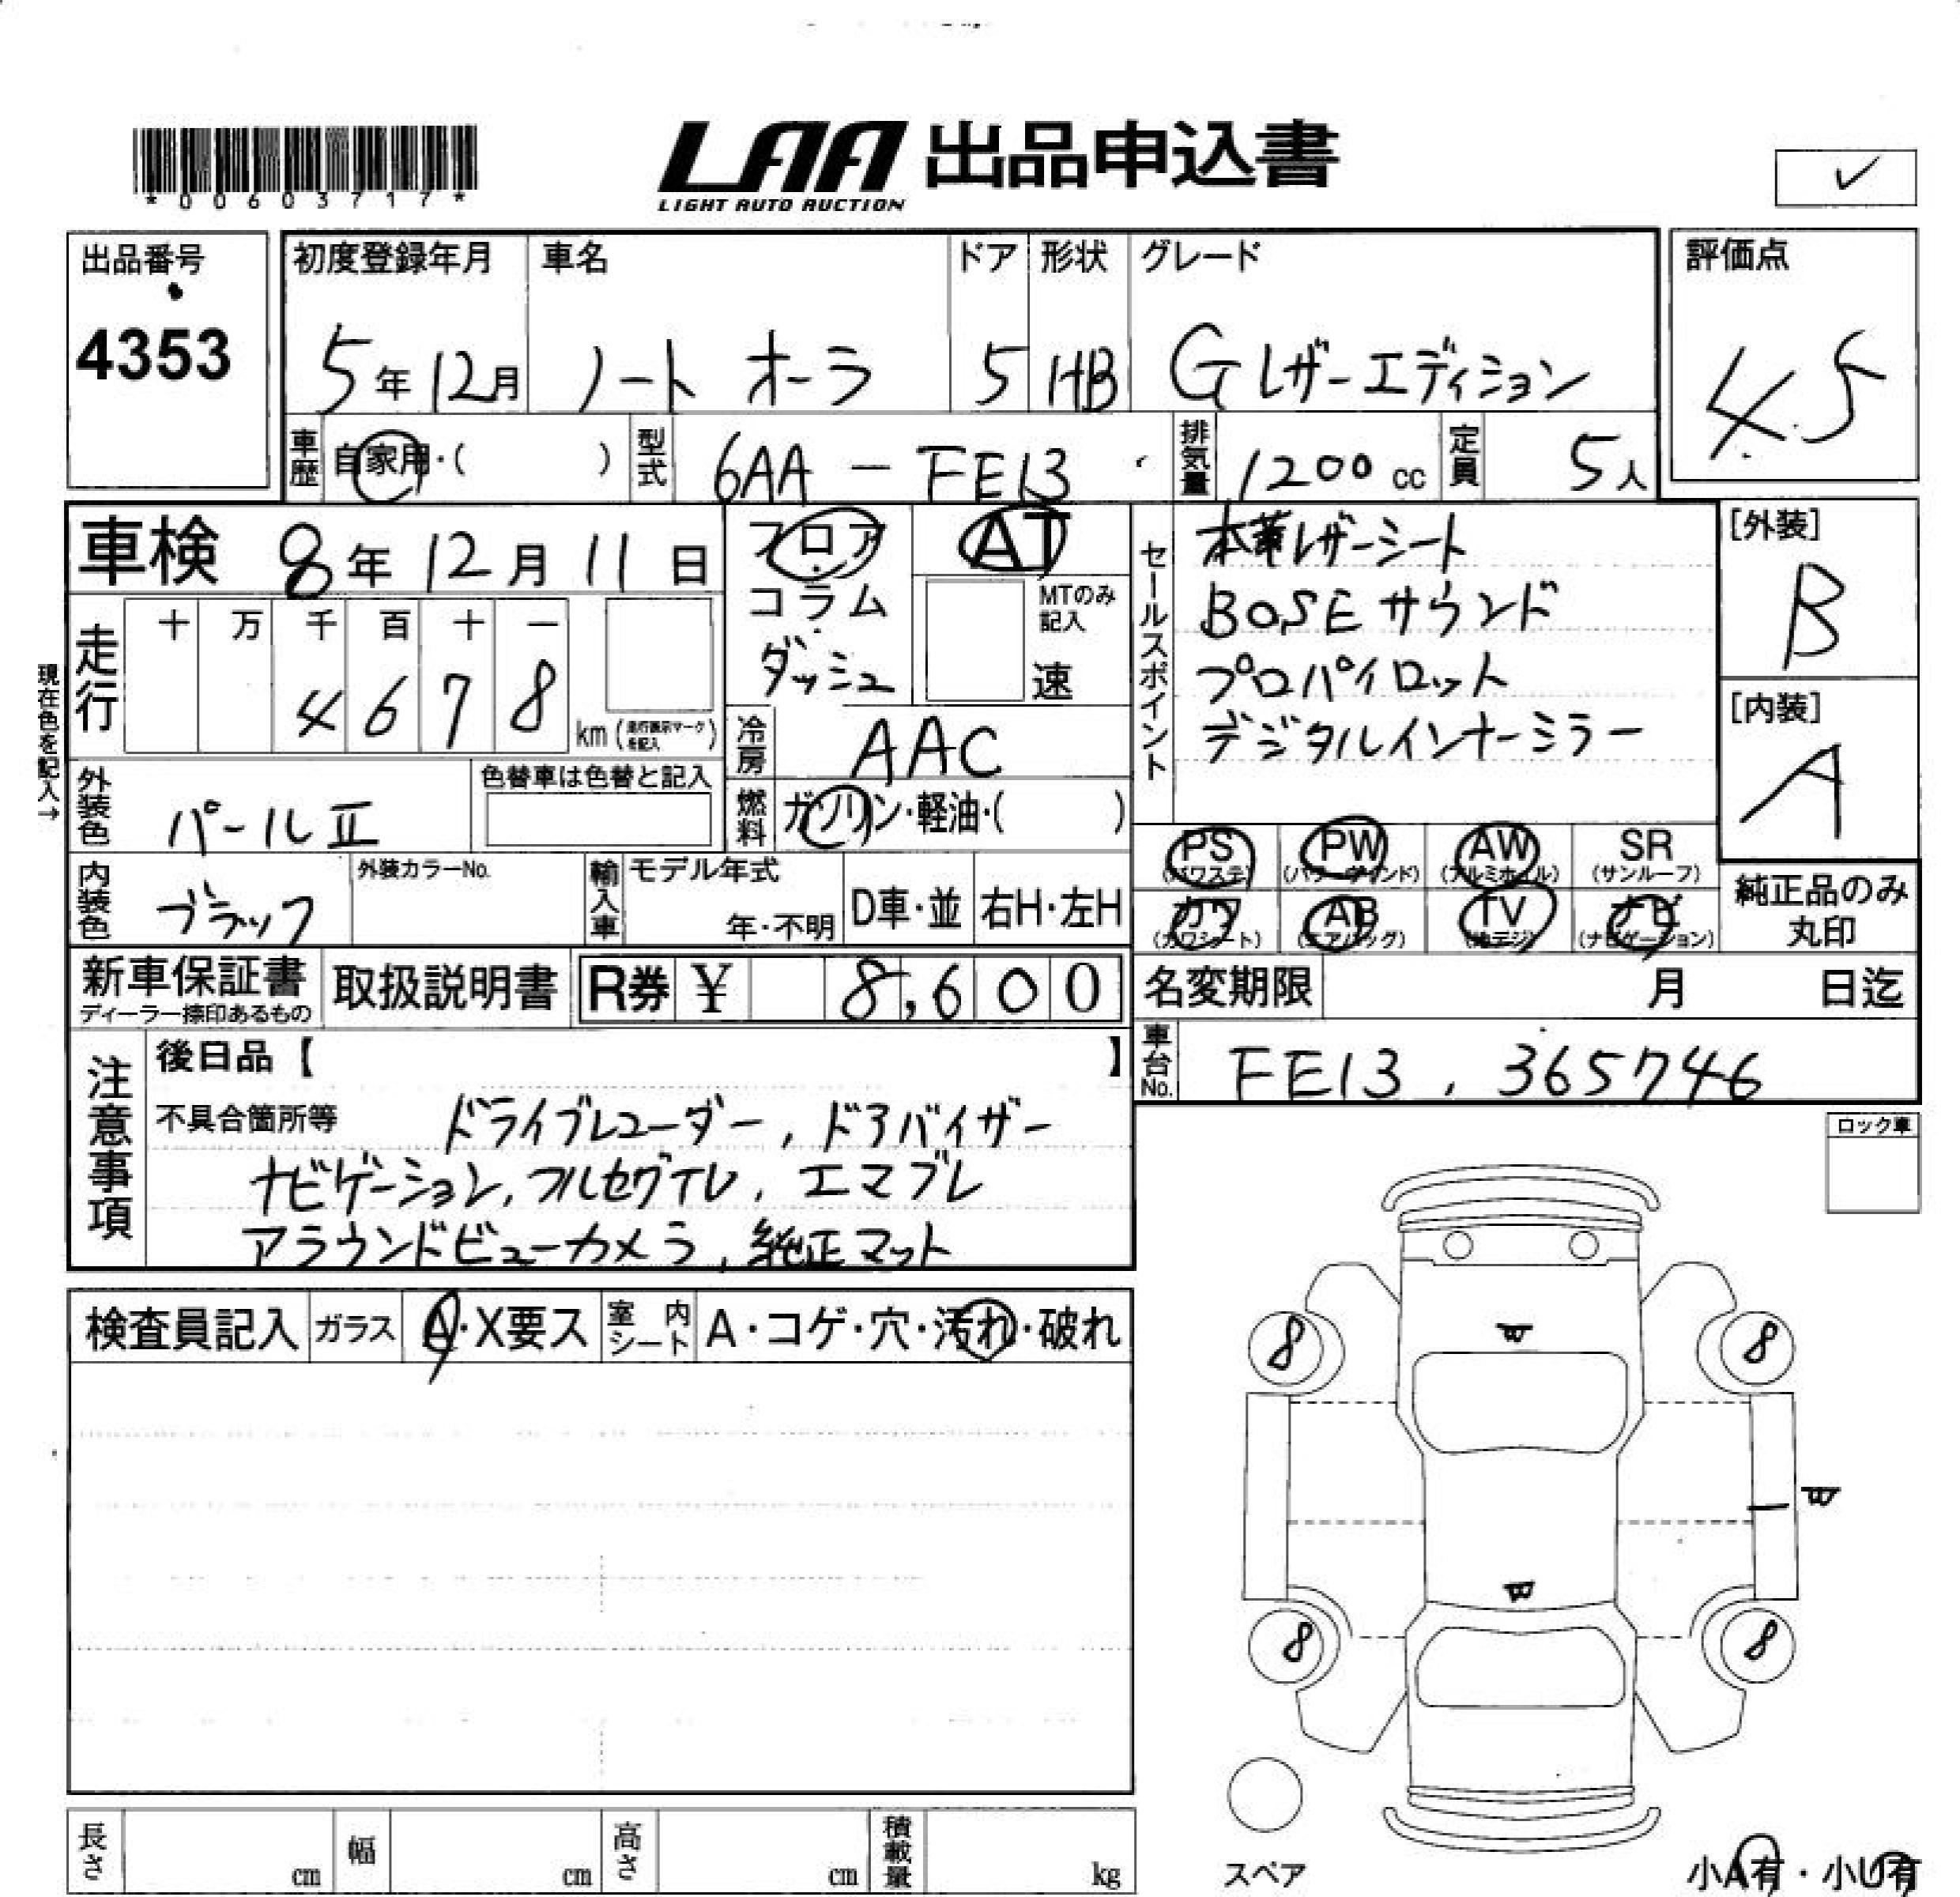 *00603717*
LAA 出品申込書
LIGHT AUTO AUCTION
✓
出品番号
4353
初度登録年月 車名 ドア 形状 グレード
5年12月 ノート オーラ 5 HB Gレザーエディション
評価点
4.5
車歴 自家用・( ) 型式 6AA-FE13 排気量 1200cc 定員 5人
車検 8年12月11日
フロア
コラム
ダッシュ
AT
MTのみ
記入
速
現在色を記入→
走行 十 万 千 百 十 一
4 6 7 8 km
冷房 AAC
燃料 ガソリン・軽油・( )
外装色 パールⅡ
色替車は色替と記入
内装色 ブラック
外装カラーNo.
輸入車 モデル年式
年・不明 D車・並 右H・左H
セールスポイント
本革レザーシート
BOSEサウンド
プロパイロット
デジタルインナーミラー
[外装]
B
[内装]
A
PS PW AW SR
(パワステ) (パワーウインド) (アルミホイル) (サンルーフ)
カワ AB TV ナビ
(カワシート) (エアバッグ) (地デジ) (ナビゲーション)
純正品のみ
丸印
新車保証書
ディーラー捺印あるもの
取扱説明書 R券 ¥ 8,600
名変期限 月 日迄
車台No. FE13, 365746
注意事項
後日品【 】
不具合箇所等 ドライブレコーダー, ドアバイザー
ナビゲーション, フルセグテレ, エマブレ
アラウンドビューカメラ, 純正マット
ロック車
検査員記入 ガラス A・X要ス 室内シート A・コゲ・穴・汚れ・破れ
8 8
8 8
スペア
小A有・小U有
長さ cm 幅 cm 高さ cm 積載量 kg